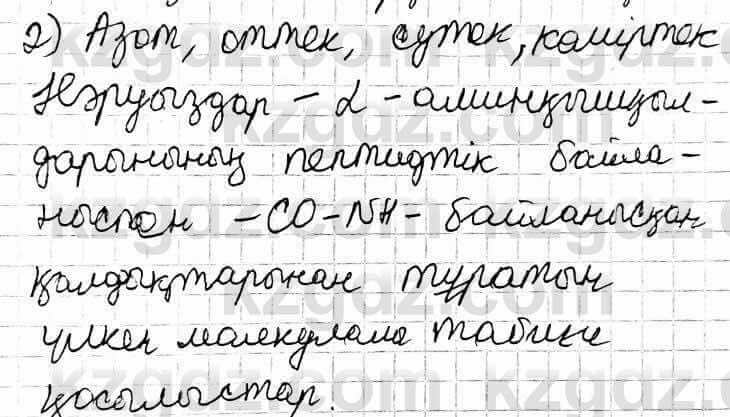 2) Азот, оттек, сутек, көміртек
Нәруыздар – α – аминқышқыл-
дарынының пептидтік байла-
ныспен – CO – NH – байланысқан
қалдықтарынан тұратын
үлкен малекулалы табиғи
қосылыстар.